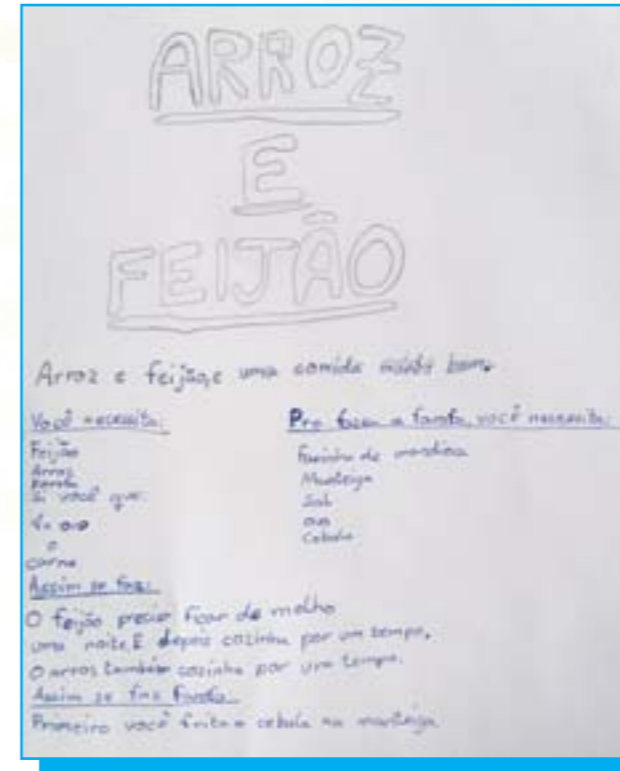 ARROZ
E
FEIJÃO
Arroz e feijão,e uma comida muito bom.
Você necessita:
Feijão
Arroz
Farofa
Si você que:
ovo
o
carne
Pra fazer a farofa, você necessita:
Farinha de mandioca
Manteiga
Sal
ovo
Cebola
Assim se faz:
O feijão precisa ficar de molho
uma noite.E depois cozinha por um tempo.
O arroz também cozinha por um tempo.
Assim se faz farofa
Primeiro você frita a cebola na manteiga